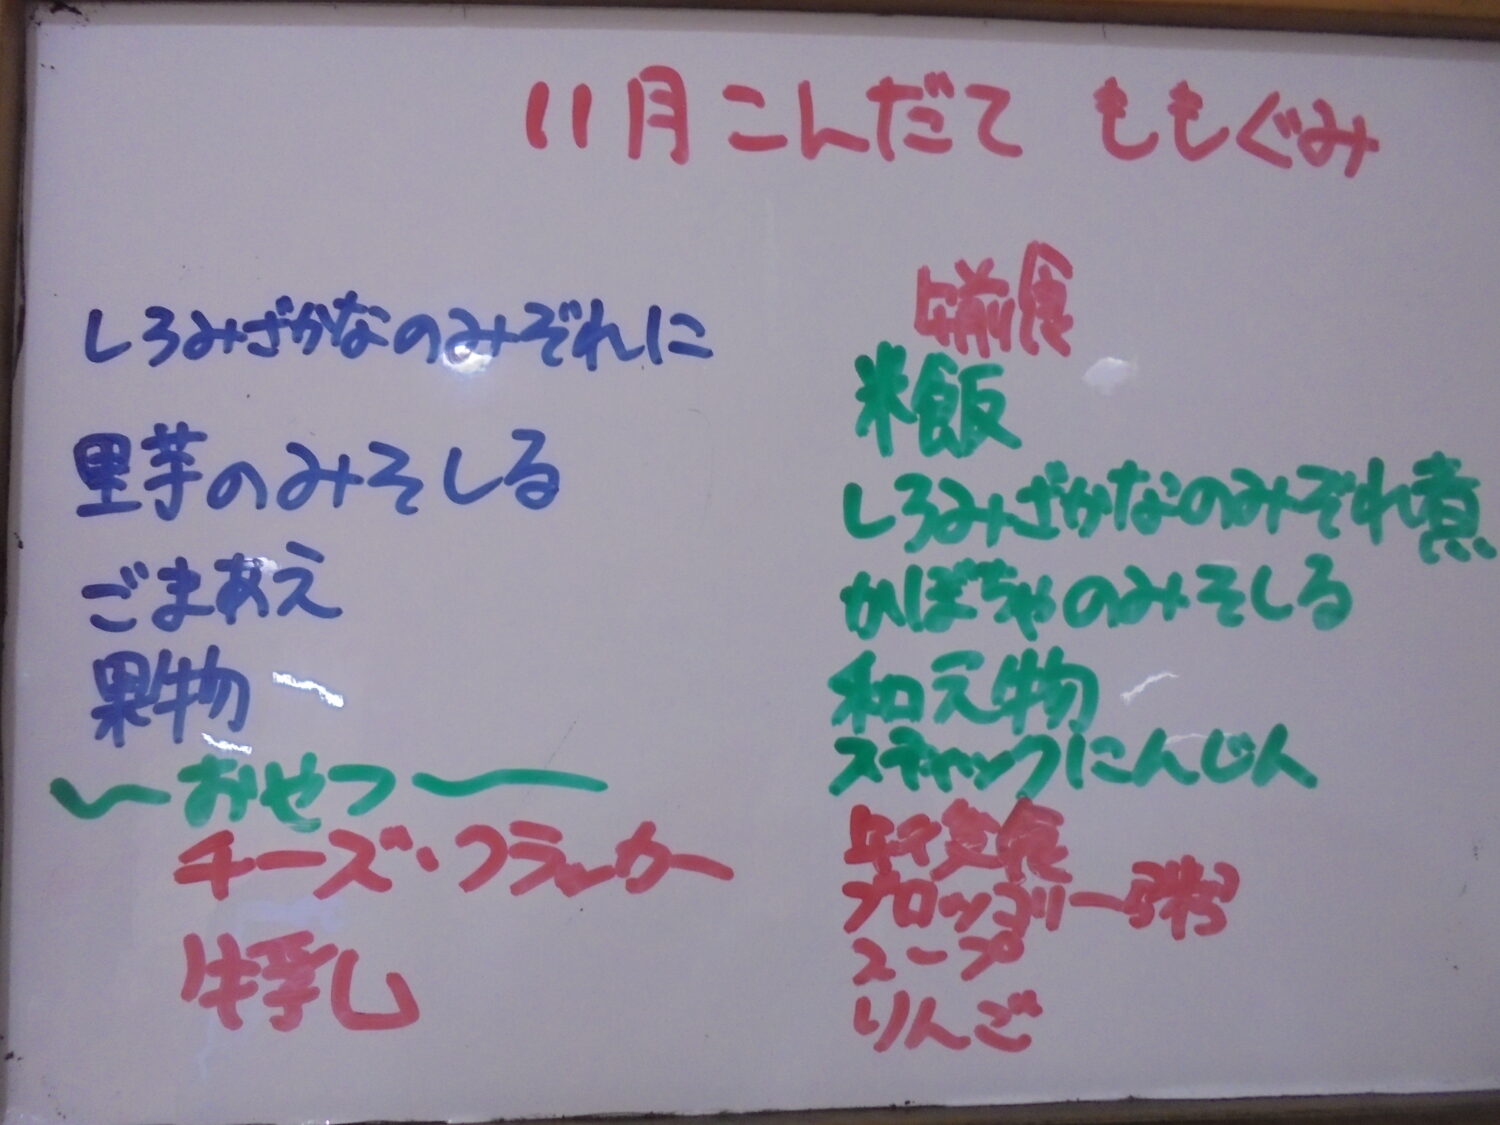 11月こんだて ももぐみ
しろみざかなのみぞれに
里芋のみそしる
ごまあえ
果物
おやつ
チーズ・クラッカー
牛乳
午前食
米飯
しろみざかなのみぞれ煮
かぼちゃのみそしる
和え物
スティックにんじん
午後食
ブロッコリー粥
スープ
りんご